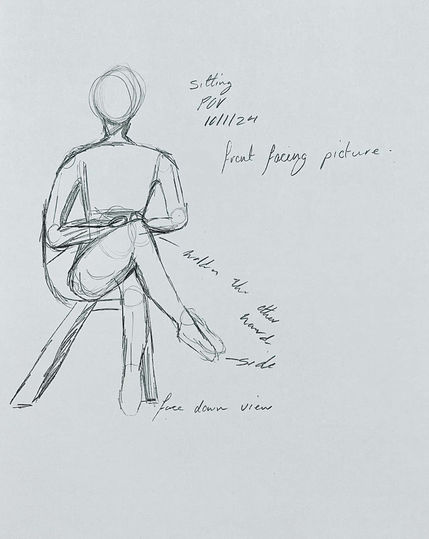 Sitting
POV
10/1/24
front facing picture.
the
other
hand
side
face down view